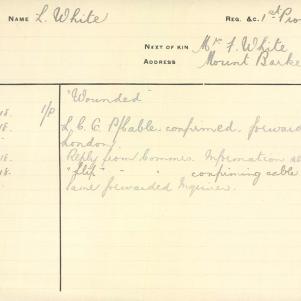 NAME L. White REG. &C. 1st Pro
NEXT OF KIN Mr F. White
ADDRESS Mount Barke
18. 1/P "Wounded"
18. L. C. C. P/Cable confirmed, forwar
London.
18. Reply from Commrs. Information se
18. " flip. " " confirming cable
Same forwarded Inquirer.